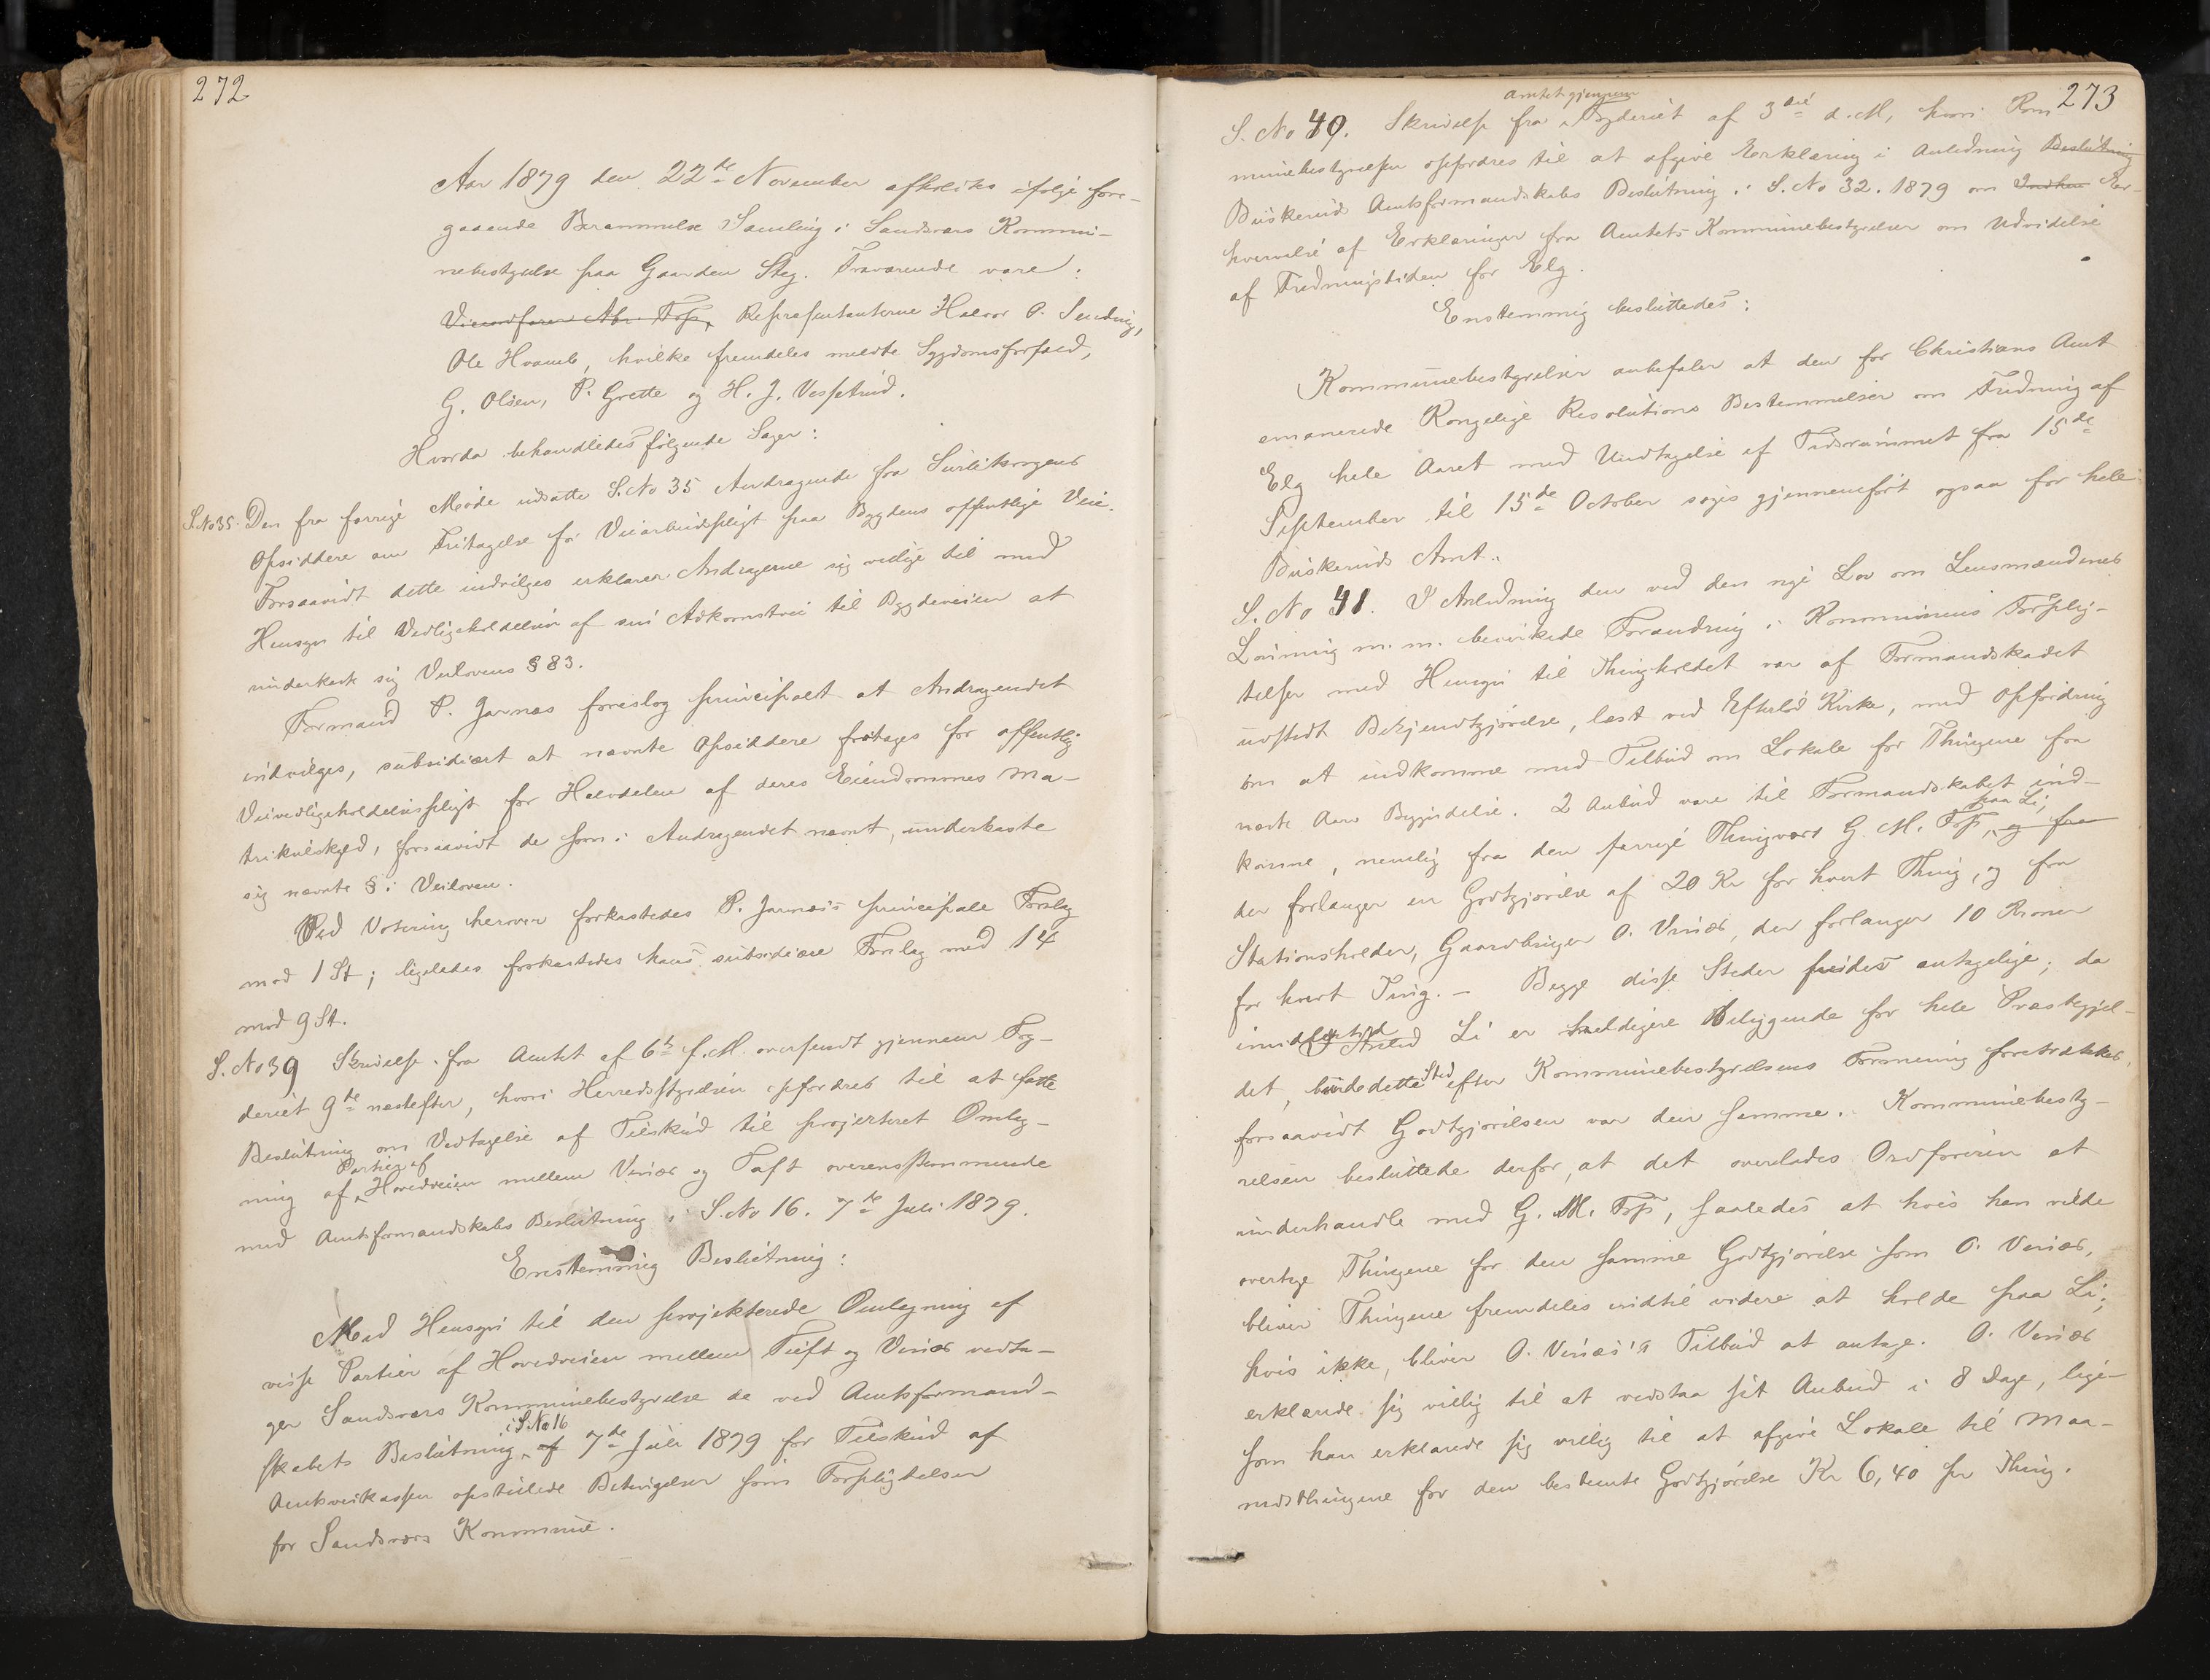 272
Aar 1879 den 22de November afholdtes ifølge fore-
gaaende Berammelse Samling i Sandsværs Kommu-
nebestyrelse paa Gaarden Steg. Fraværende vare:
Viceordfører Abr. Fossp, Repræsentanterne Halvor O. Sending,
Ole Hvamb, hvilke fremdeles meldte Sygdomsforfald,
G. Olsen, P. Grette og H. J. Vessterud.
Hvorda behandledes følgende Sager:
S.No35. Den fra forrige Møde udsatte S.No 35 Andragende fra
Opsiddere om Fritagelse for Veiarbeidspligt paa Bygdens offentlige Veie.
Forsaavidt dette indvilges erklærer Andragerne sig villige til med
Hensyn til Vedligeholdelsen af sin Adkomstvei til Bygdeveien at
underkaste sig Veilovens § 83.
Formand P. Jarnæs foreslog principalt at Andragendet
indvilges, subsidiært at nævnte Opsiddere fritages for offentlig
Veivedligeholdelsespligt for Halvdelen af deres Eiendommes Ma-
trikulskyld, forsaavidt de som i Andragendet nævnt, underkaste
sig nævnte § i Veiloven.
Ved Votering herover forkastedes P. Jarnæs's principale Forslag
mod 1 St; ligeledes forkastedes hans subsidiære Forslag med 14
mod 9 St.
S. No 39 Skrivelse fra Amtet af 6te f. M. oversendt gjennem Fog-
deriet 9de næstefter, hvori Herredsstyrelsen opfordres til at fatte
Beslutning om Vedtagelse af Tilskud til projecteret Omlæg-
Partier af
ning af Hovedveien mellem Veniæs og Toft overensstemmende
med Amtsformandskabs Beslutning i S. No 16. 7de Juli 1879.
Enstemmig Beslutning:
Med Hensyn til den projekterede Omlægning af
visse Partier af Hovedveien mellem Tuft og Viniæs vedta-
ger Sandsværs Kommunebestyrelse de ved Amtsformand-
i S.No 16
skabets Beslutning af 7de Juli 1879 for Tilskud af
Amtsveikassen opstillede Betingelser som Forpligtelser
for Sandsværs Kommune.
273
Amtet gjennem
S. No 40. Skrivelse fra Fogderiet af 3die d. M, hvori Kom
munebestyrelsen opfordres til at afgive Erklæring i Anledning Beslutning
Buskeruds Amtsformandskabs Beslutning i S. No 32. 1879 om Indhen Er-
hvervelse af Erklæringer fra Amtets Kommunebestyrelser om Udvidelse
af Fredningstiden for Elg.
Enstemmig besluttedes:
Kommunebestyrelsen anbefaler at den for Christians Amt
emanerede Kongelige Resolutions Bestemmelser om Fredning af
Elg hele Aaret med Undtagelse af Tidsrummet fra 15de
September til 15de October søges gjennemført ogsaa for hele
Buskeruds Amt.
S. No 41. I Anledning den ved den nye Lov om Lensmændenes
Lønning m. m. bevirkede Forandring i Kommunens Forplig-
telser med Hensyn til Thingholdet var af Formandskabet
udstedt Bekjendtgjørelse, læst ved Efteløt Kirke, med Opfordring
om at indkomme med Tilbud om Lokale for Thingene fra
næste Aars Begyndelse. 2 Anbud vare til Formandskabet ind-
paa Li,
komne, nemlig fra den forrige Thingvært G. M. Foss, og fra
der forlanger en Godtgjørelse af 20 Kr for hvert Thing, og fra
Stationsholder, Gaardbruger O. Viniæs, der forlanger 10 Kroner
for hvert Ting. — Begge disse Steder fandtes antagelige; da
imidlertid
Li er heldigere beliggende for hele Præstegjel-
Sted
det, burde dette efter Kommunebestyrelsens Formening foretrækkes,
forsaavidt Godtgjørelsen var den samme. Kommunebesty-
relsen besluttede derfor, at det overlades Ordføreren at
underhandle med G. M. Foss, saaledes at hvis han vilde
overtage Thingene for den samme Godtgjørelse som O. Viniæs,
bliver Thingene fremdeles indtil videre at holde paa Li;
hvis ikke, bliver O. Viniæs's Tilbud at antage. O. Viniæs
erklærede sig villig til at vedstaa sit Anbud i 8 Dage, lige-
som han erklærede sig villig til at afgive Lokale til Maa-
nedsthingene for den bestemte Godtgjørelse Kr 6,40 pr Thing.